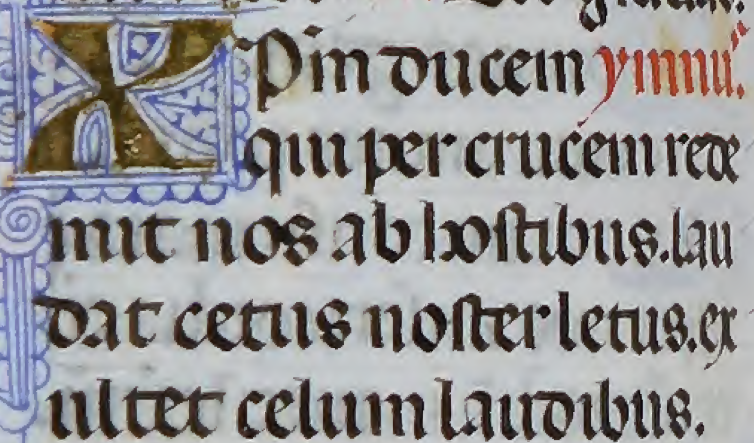 XPm ducem ymnuˢ.
qui per crucem rede
mit nos ab hostibus. lau
dat cetus noster letus. ex
ultet celum laudibus.